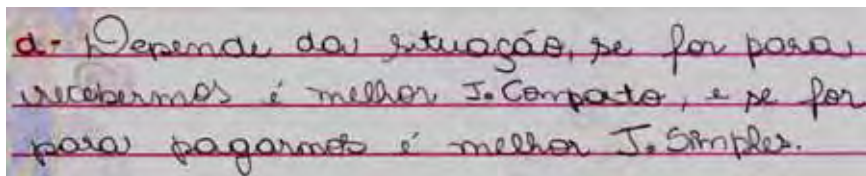 d- Depende da situação, se for para
recebermos é melhor J. Composto, e se for
para pagarmos é melhor J. Simples.